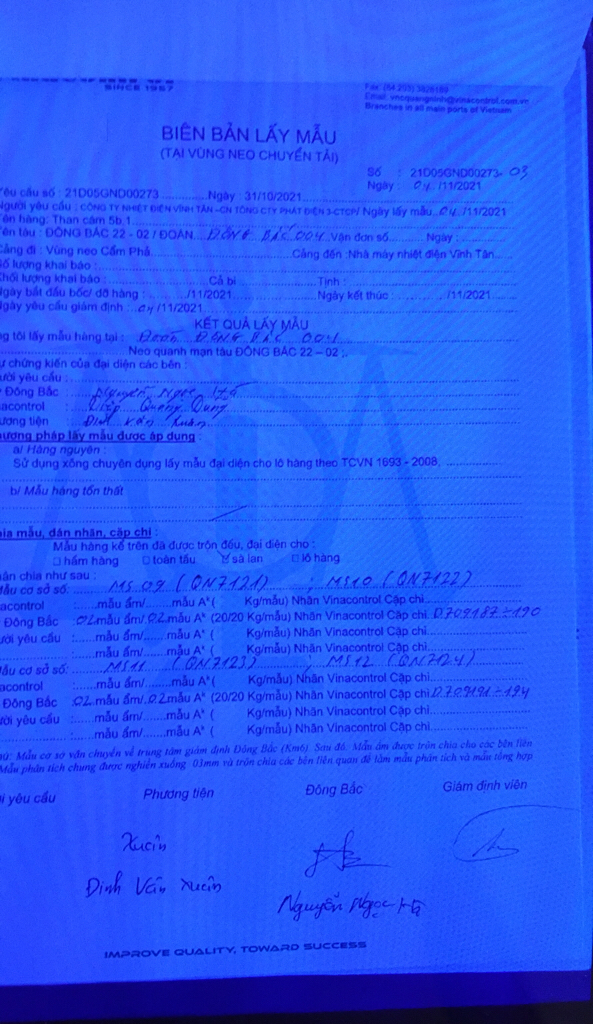 SINCE 1957
Fax: (84 203) 3826189
Email: vncquangninh@vinacontrol.com.vn
Branches in all main ports of Vietnam
BIÊN BẢN LẤY MẪU
(TẠI VÙNG NEO CHUYỂN TẢI)
Số : 21D05GND00273- 03
Ngày : 04 /11/2021
Yêu cầu số : 21D05GND00273 .............Ngày : 31/10/2021
Người yêu cầu : CÔNG TY NHIỆT ĐIỆN VĨNH TÂN –CN TỔNG CTY PHÁT ĐIỆN 3-CTCP/ Ngày lấy mẫu. 04 /11/2021
ên hàng: Than cám 5b.1
ên tàu : ĐÔNG BẮC 22 - 02 / ĐOÀN ĐÔNG BẮC 004 Vận đơn số Ngày :
Cảng đi : Vùng neo Cẩm Phả Cảng đến :Nhà máy nhiệt điện Vĩnh Tân
Số lượng khai báo :
Khối lượng khai báo : Cả bì Tịnh :
Ngày bắt đầu bốc/ dỡ hàng : /11/2021 Ngày kết thúc : /11/2021
Ngày yêu cầu giám định : 04 /11/2021
KẾT QUẢ LẤY MẪU
g tôi lấy mẫu hàng tại : Đoàn ĐÔNG BẮC 004
Neo quanh mạn tàu ĐÔNG BẮC 22 – 02 ;
ự chứng kiến của đại diện các bên :
ười yêu cầu :
Đông Bắc : Nguyễn Ngọc Hà
acontrol : Quang Dung
ương tiện : Đinh Văn Xuân
ương pháp lấy mẫu được áp dụng :
a/ Hàng nguyên :
Sử dụng xông chuyên dụng lấy mẫu đại diện cho lô hàng theo TCVN 1693 - 2008,
b/ Mẫu hàng tổn thất
ia mẫu, dán nhãn, cặp chì :
Mẫu hàng kể trên đã được trộn đều, đại diện cho :
☐ hầm hàng ☐ toàn tàu ☑ sà lan ☐ lô hàng
ân chia như sau :
ẫu cơ sở số: MS 09 ( QN7121) ; MS10 ( QN7122)
acontrol :......mẫu ẩm/........mẫu A* ( Kg/mẫu) Nhãn Vinacontrol Cặp chì
Đông Bắc :02 mẫu ẩm/.02 mẫu A* (20/20 Kg/mẫu) Nhãn Vinacontrol Cặp chì D709187÷190
ười yêu cầu :......mẫu ẩm/........mẫu A* ( Kg/mẫu) Nhãn Vinacontrol Cặp chì
......mẫu ẩm/........mẫu A* ( Kg/mẫu) Nhãn Vinacontrol Cặp chì
ẫu cơ sở số: MS11 (QN7123) ; MS12 (QN7124)
acontrol :......mẫu ẩm/........mẫu A* ( Kg/mẫu) Nhãn Vinacontrol Cặp chì
Đông Bắc :02 mẫu ẩm/.02 mẫu A* (20/20 Kg/mẫu) Nhãn Vinacontrol Cặp chì D709191÷194
ười yêu cầu :......mẫu ẩm/........mẫu A* ( Kg/mẫu) Nhãn Vinacontrol Cặp chì
......mẫu ẩm/........mẫu A* ( Kg/mẫu) Nhãn Vinacontrol Cặp chì
Mẫu cơ sở vận chuyển về trung tâm giám định Đông Bắc (Km6) Sau đó Mẫu ẩm được trộn chia cho các bên liên
Mẫu phân tích chung được nghiền xuống 03mm và trộn chia các bên liên quan để làm mẫu phân tích và mẫu tổng hợp
i yêu cầu Phương tiện Đông Bắc Giám định viên
Xuân
Đinh Văn Xuân
Nguyễn Ngọc Hà
IMPROVE QUALITY, TOWARD SUCCESS